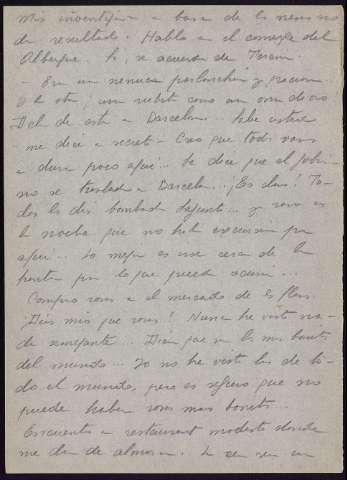 Mis investigaciones a base de los nenes no
dan resultado. Hablo a el conserje del
Albergue. Si, se acuerda de
- Era un nenuca parlanchin y gracioso
O el otro, un rubito como un oro
Del de este a Barcelona... Sabe usted
me dice a secreto - Creo que todos vamos
a durar poco aqui... Se dice que el Gobier-
no se traslada a Barcelona ¡Es claro! To-
dos los dias bombardeo segun... y raro es
la noche que no hubo excursion por
aqui... Lo mejor es irse cerca de la
frontera por lo que pueda ocurrir...
Compro rosas a el mercado de las flores.
¡Dios mio que rosas! Nunca he visto na-
da semejante... Dicen que son las mas bonitas
del mundo... Yo no he visto las de to-
do el mundo, pero es seguro que no
puede haber rosas mas bonitas...
Encuentro un restaurant modesto donde
me dan de almorzar. Lo